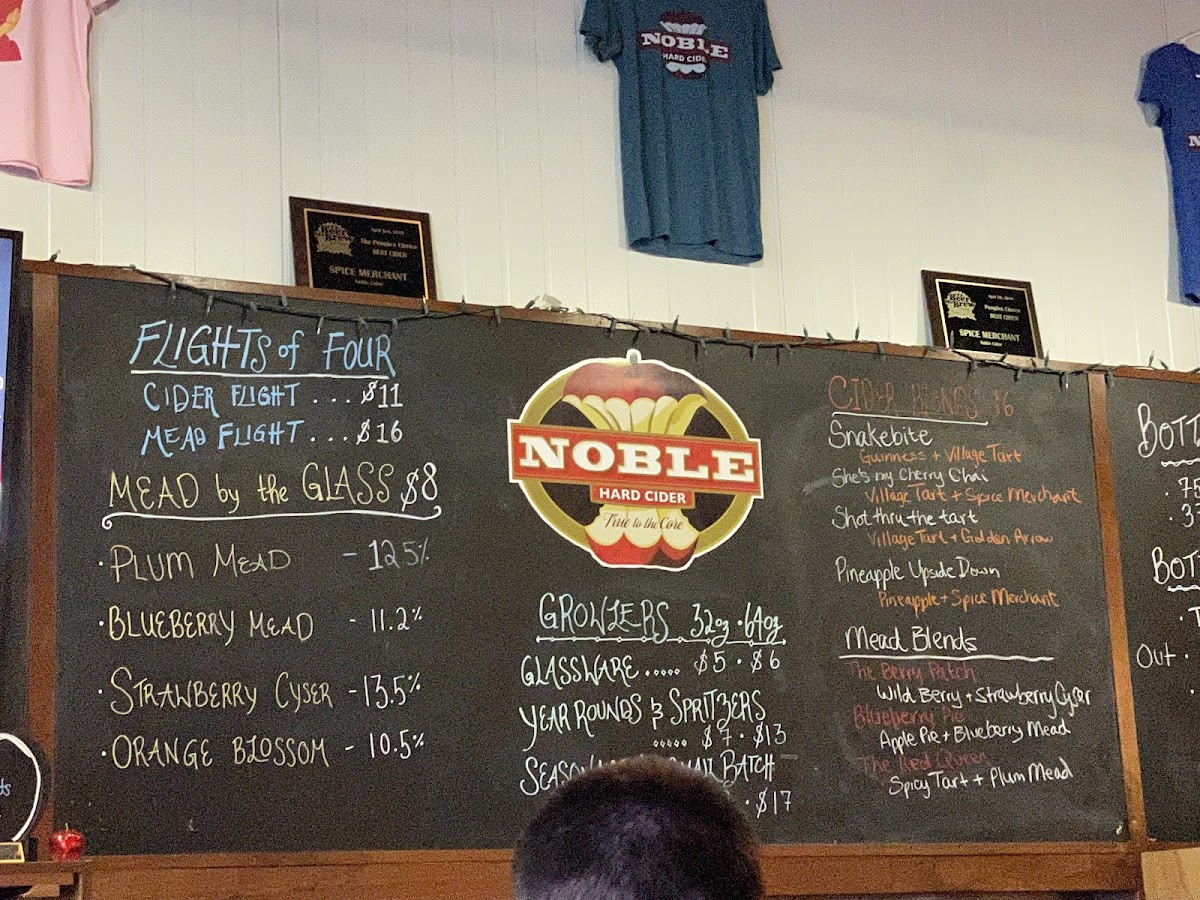 NOBLE
HARD CIDER
April 2nd, 2016
The Peoples Choice
BEST CIDER
SPICE MERCHANT
Noble Cider
Peoples Choice
BEST CIDER
SPICE MERCHANT
Noble Cider
FLIGHTS of FOUR
CIDER FLIGHT ... $11
MEAD FLIGHT ... $16
MEAD by the GLASS $8
· PLUM MEAD - 12.5%
· BLUEBERRY MEAD - 11.2%
· STRAWBERRY CYSER - 13.5%
· ORANGE BLOSSOM - 10.5%
NOBLE
HARD CIDER
True to the Core
GROWLERS 32oz · 64oz
GLASSWARE ..... $5 · $6
YEAR ROUNDS & SPRITZERS
..... $7 · $13
BATCH
· $17
CIDER BLENDS $6
Snakebite
Guinness + Village Tart
She's my Cherry Chai
Village Tart + Spice Merchant
Shot thru the tart
Village Tart + Golden Arrow
Pineapple Upside Down
Pineapple + Spice Merchant
Mead Blends
The Berry Patch
Wild Berry + Strawberry Cyser
Blueberry Pie
Apple Pie + Blueberry Mead
The Red Queen
Spicy Tart + Plum Mead
Out ·